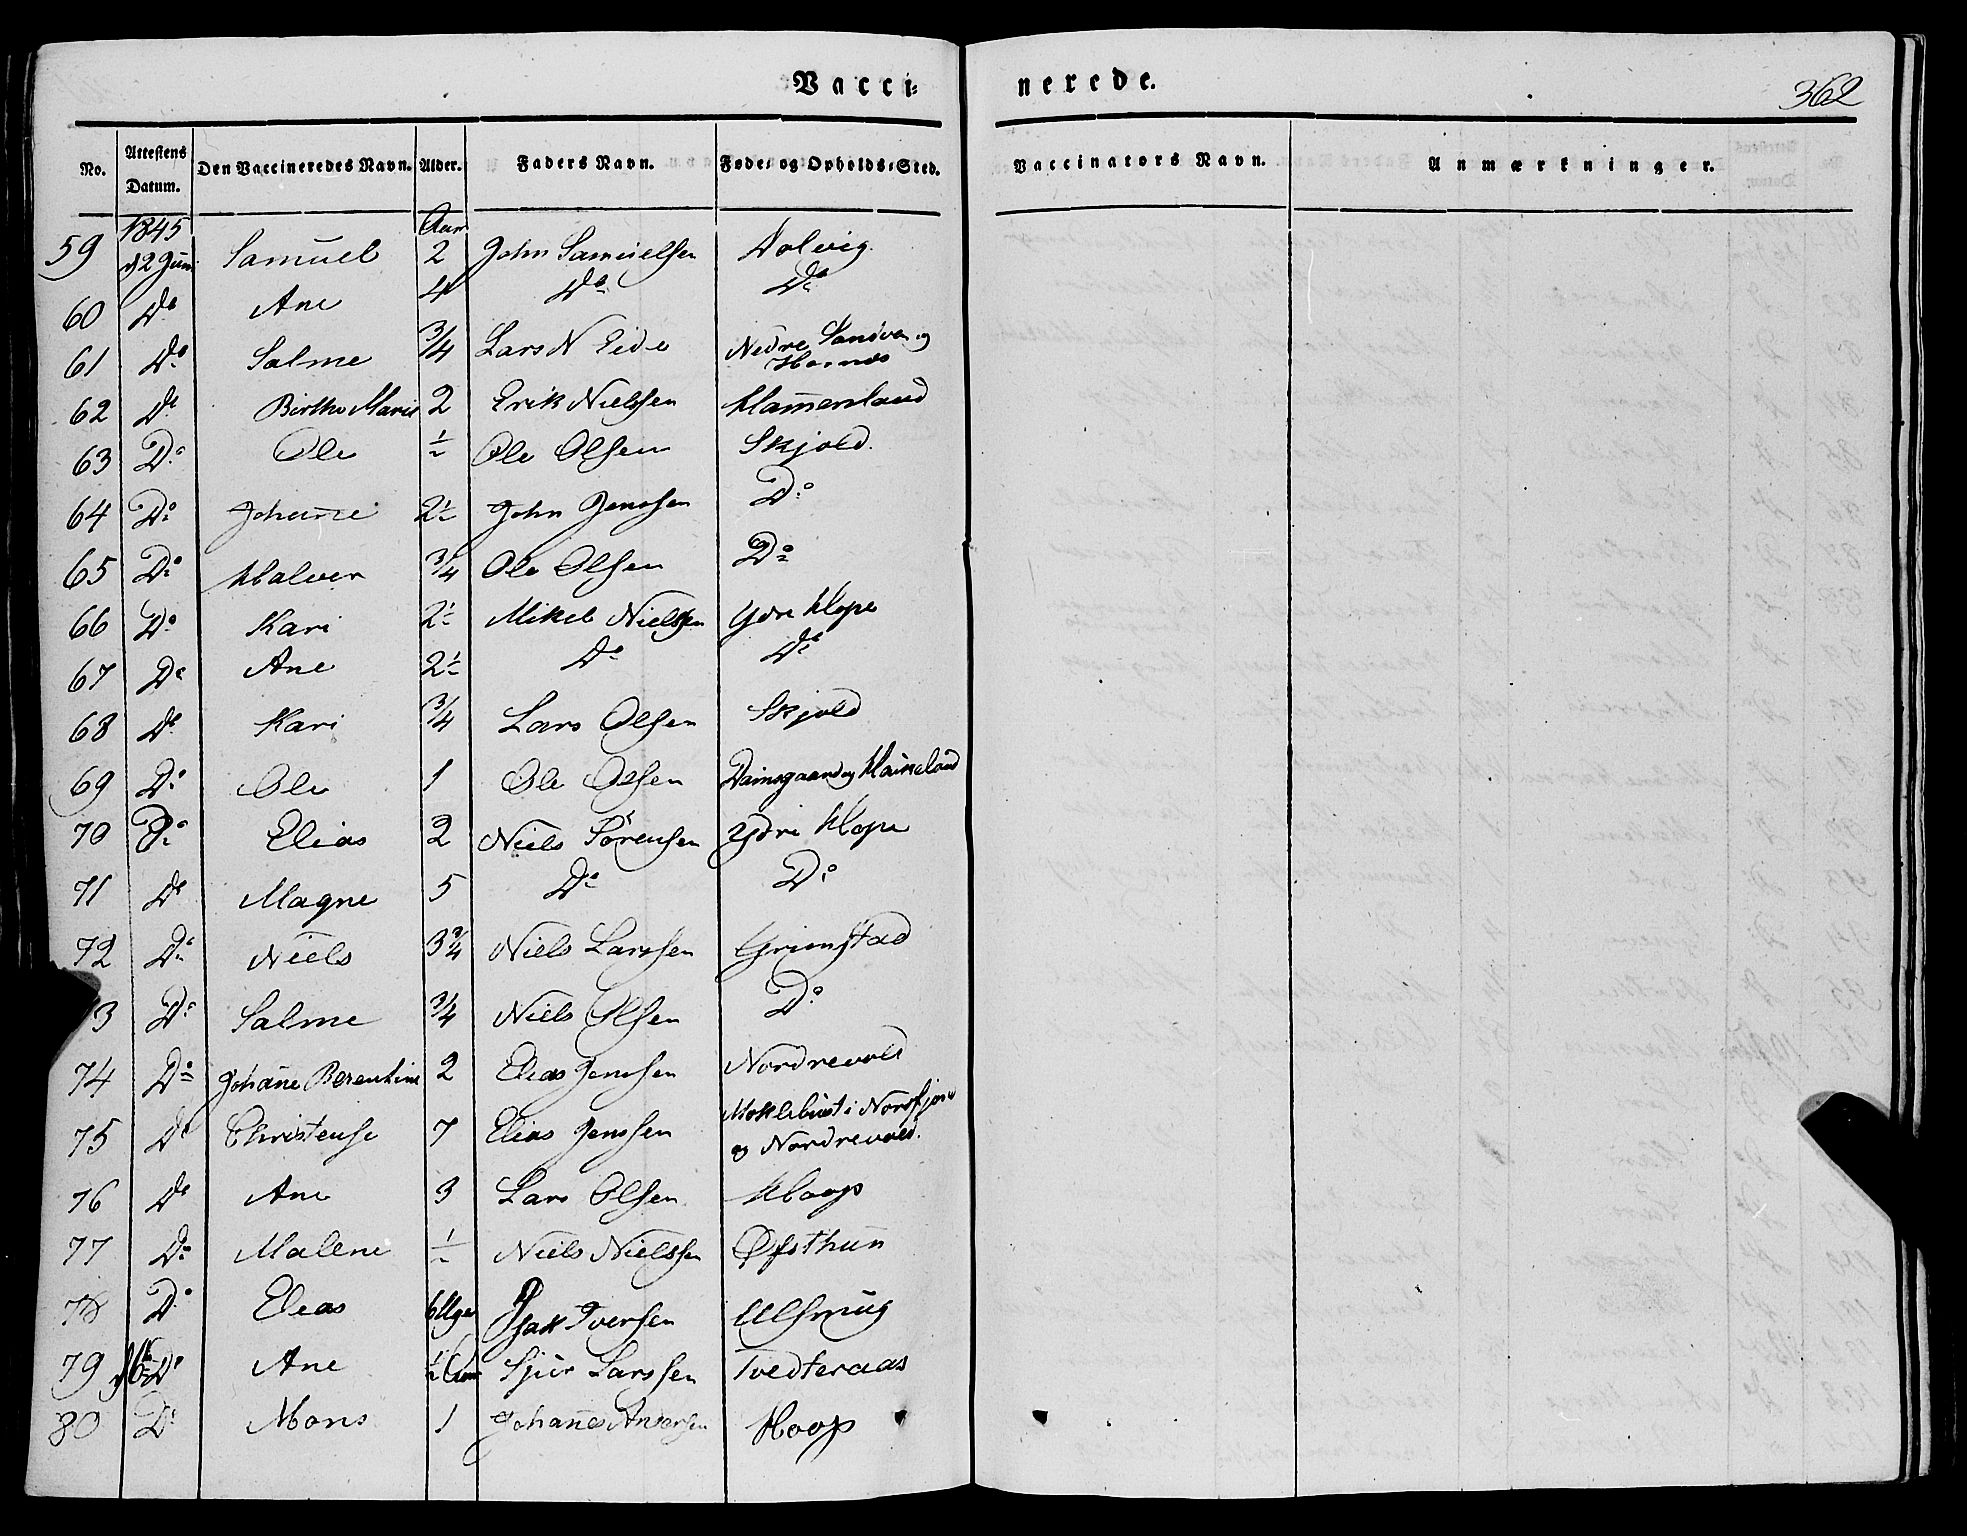 Vacci-
nerede.
362
No. Attestens Datum. Den Vaccineredes Navn. Alder. Faders Navn. Føde- og Opholds-Sted. Vaccinators Navn. Anmærkninger.
1845 Aar
59 d 2 Juni Samuel 2 John Samuelsen Dolvig.
60 Do Ane 4 Do Do
61 Do Salme 3/4 Lars N Eide Nedre Sandven og
Hornnes
62 Do Birthe Marie 2 Erik Nielssen Hammersland
63 Do Ole ½ Ole Olssen Skjold.
64 Do Johanne 2½ John Jenssen Do
65 Do Halver 3/4 Ole Olssen Do
66 Do Kari 2½ Mikel Nielssen Ydre Hope
67 Do Ane 2½ Do Do
68 Do Kari 3/4 Lars Olsen Skjold
69 Do Ole 1 Ole Olsen Damsgaard og Haukeland
70 Do Elias 2 Niels Sørensen Ydre Hope
71 Do Magne 5 Do Do
72 Do Niels 3 3/4 Niels Larssen Grimstad
3 Do Salme 3/4 Niels Olsen Do
74 Do Johanne Berentine 2 Elias Jenssen Nordrevold
75 Do Christense 7 Elias Jenssen Moklebust i Nordfjord
og Nordrevold.
76 Do Ane 3 Lars Olsen Hoop
77 Do Malene ½ Niels Nielssen Øfsthun
78 Do Elias 6 Uger Isak Iversen Ulsmug
79 d 6 Do Ane ½ Aar Sjur Larssen Tvedteraas
80 Do Mons 1 Johannes Andersen Hoop